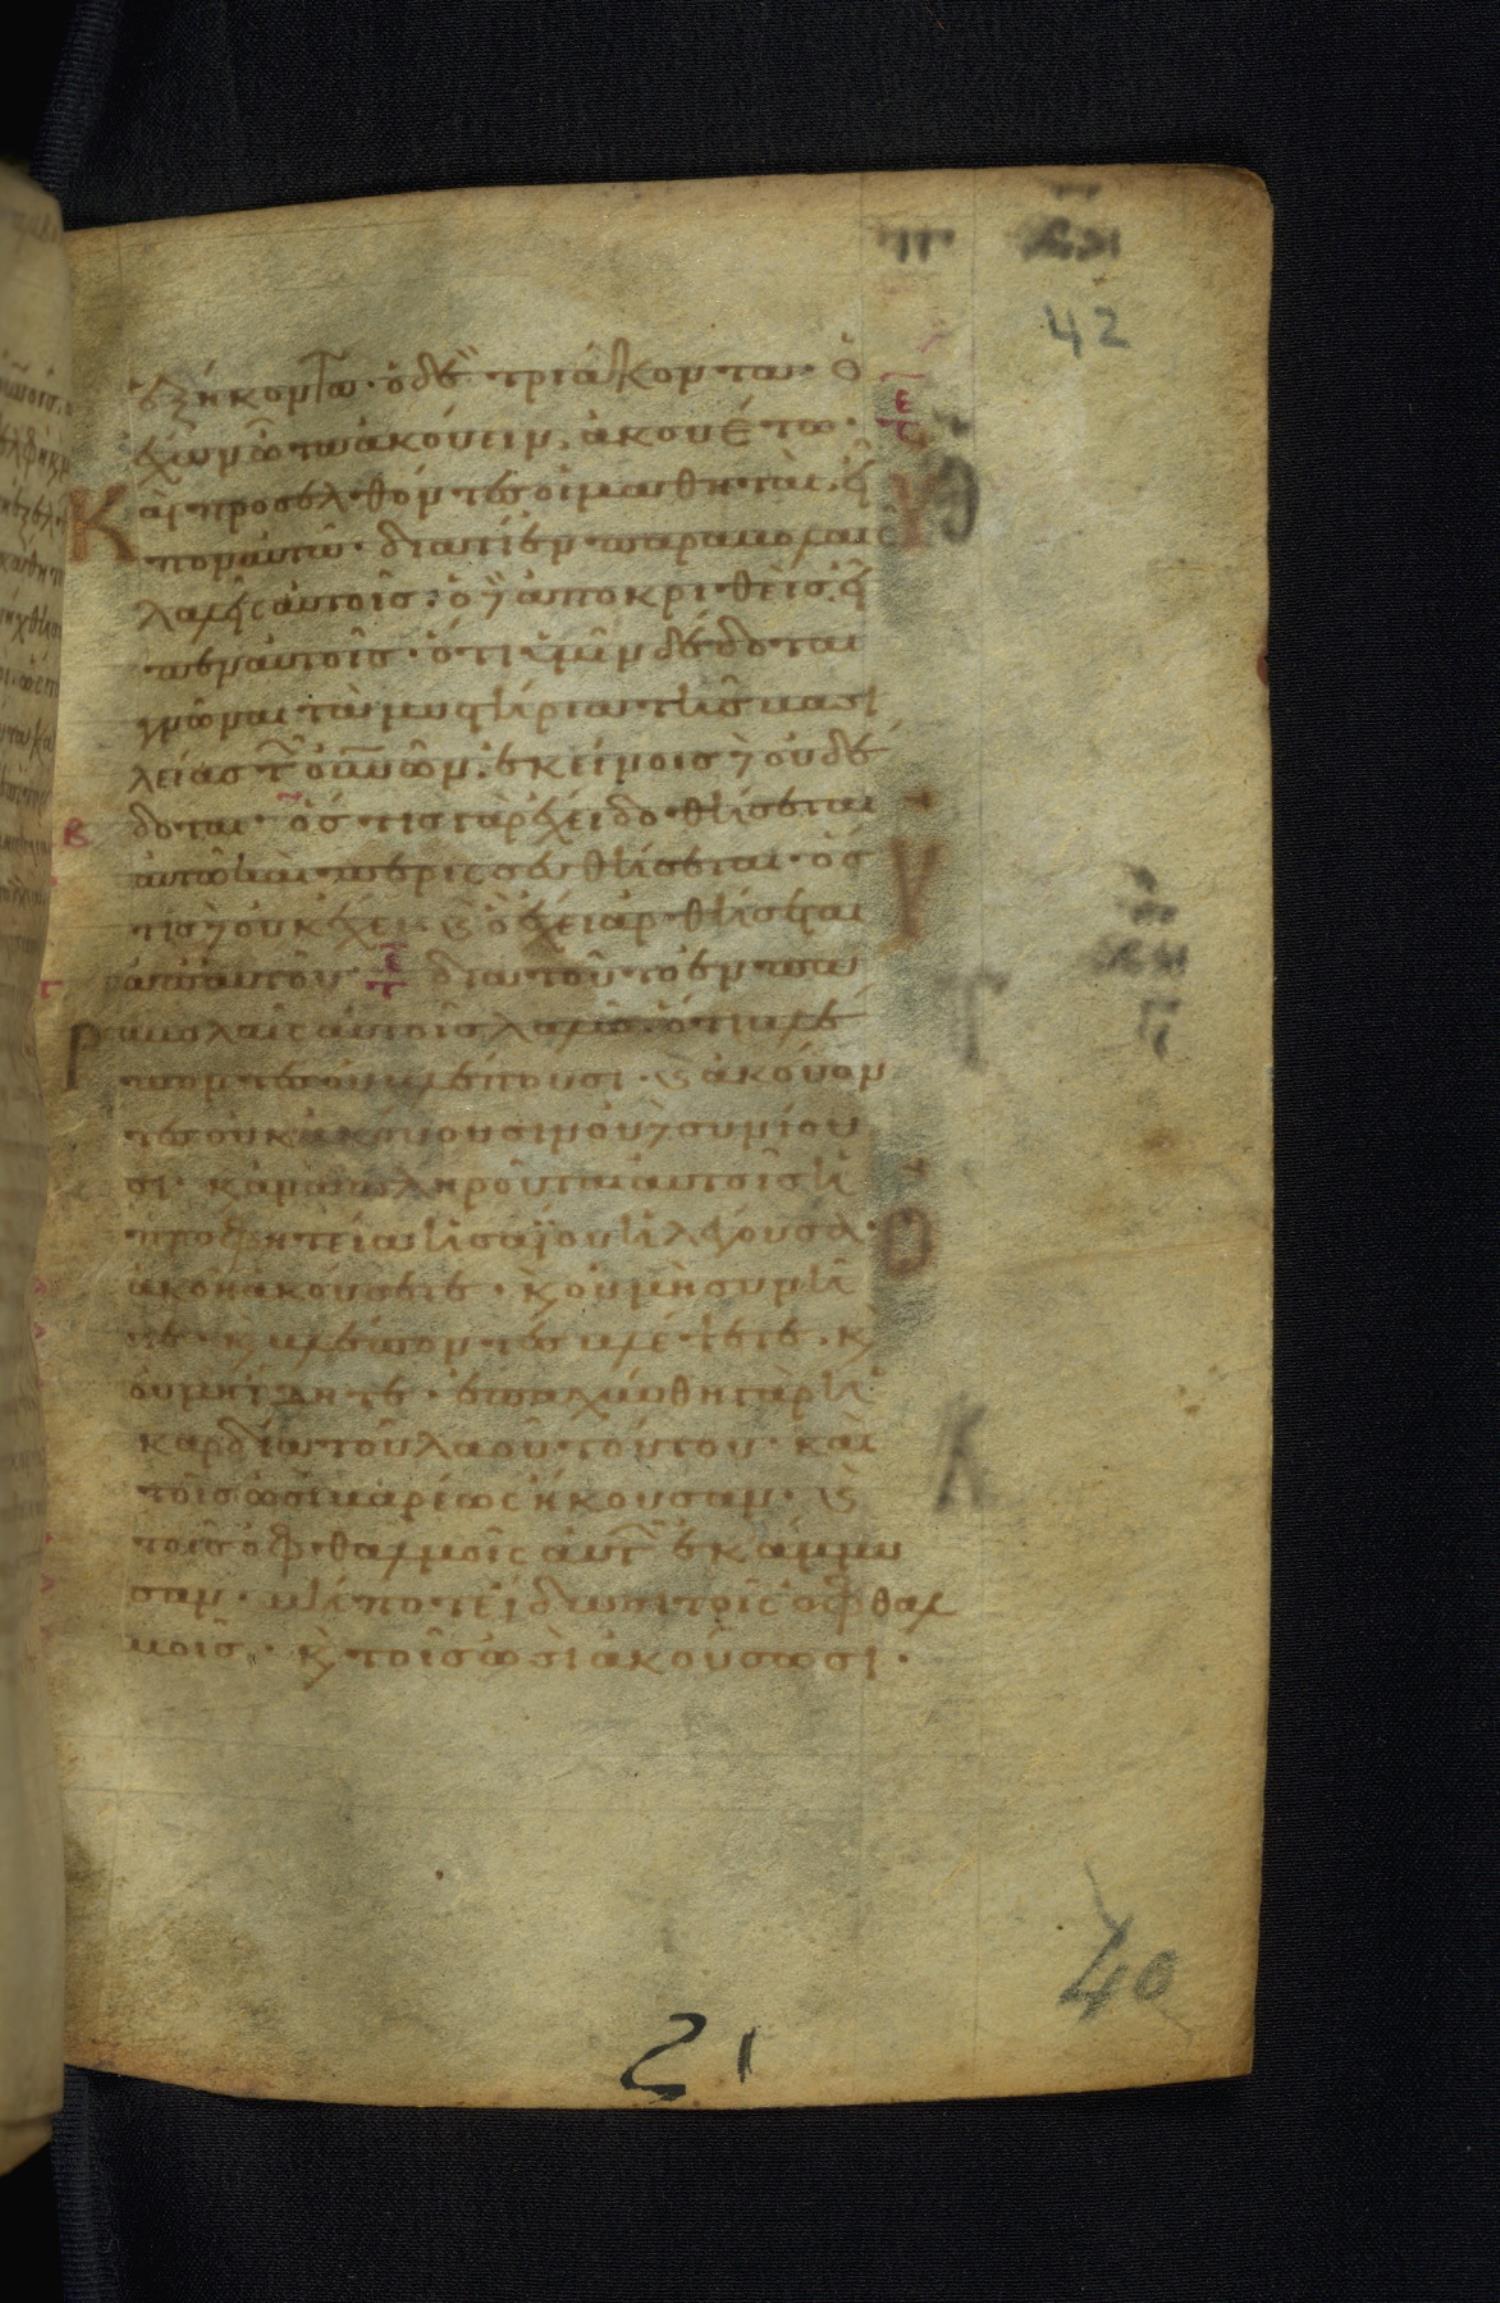 42
ἑξήκοντα· ὁ δὲ τριάκοντα· ὁ
ἔχων ὦτα ἀκούειν, ἀκουέτω·
Καὶ προσελθόντες οἱ μαθηταὶ, εἶ
πον αὐτῶ· διατί ἐν παραβολαῖς
λαλεῖς αὐτοῖς· ὁ δὲ ἀποκριθεὶς εἶ
πεν αὐτοῖς· ὅτι ὑμῖν δέδοται
γνῶναι τὰ μυστήρια τῆς βασι
λείας τῶν οὐνῶν· ἐκείνοις δὲ οὐ δέ
δοται· ὅστις γὰρ ἔχει δοθήσεται
αὐτῶ καὶ περισσευθήσεται· ὅσ
τις δὲ οὐκ ἔχει καὶ ὃ ἔχει ἀρθήσεται
ἀπ' αὐτοῦ· διατοῦτο ἐν πα
ραβολαῖς αὐτοῖς λαλῶ· ὅτι βλέ
ποντες οὐ βλέπουσι· καὶ ἀκούον
τες οὐκ ἀκούουσιν οὐδὲ συνίου
σι· καὶ ἀναπληροῦται αὐτοῖς ἡ
προφητεία ἡσαΐου ἡ λέγουσα·
ἀκοῆ ἀκούσετε· καὶ οὐ μὴ συνῆ
τε· καὶ βλέποντες βλέψετε· καὶ
οὐ μὴ ἴδητε· ἐπαχύνθη γὰρ ἡ
καρδία τοῦ λαοῦ τούτου· καὶ
τοῖς ὠσὶ βαρέως ἤκουσαν· καὶ
τοῖς ὀφθαλμοῖς αὐτῶν ἐκάμμυ
σαν· μήποτε ἴδωσι τοῖς ὀφθαλ
μοῖς· καὶ τοῖς ὠσὶ ἀκούσωσι·
40
21